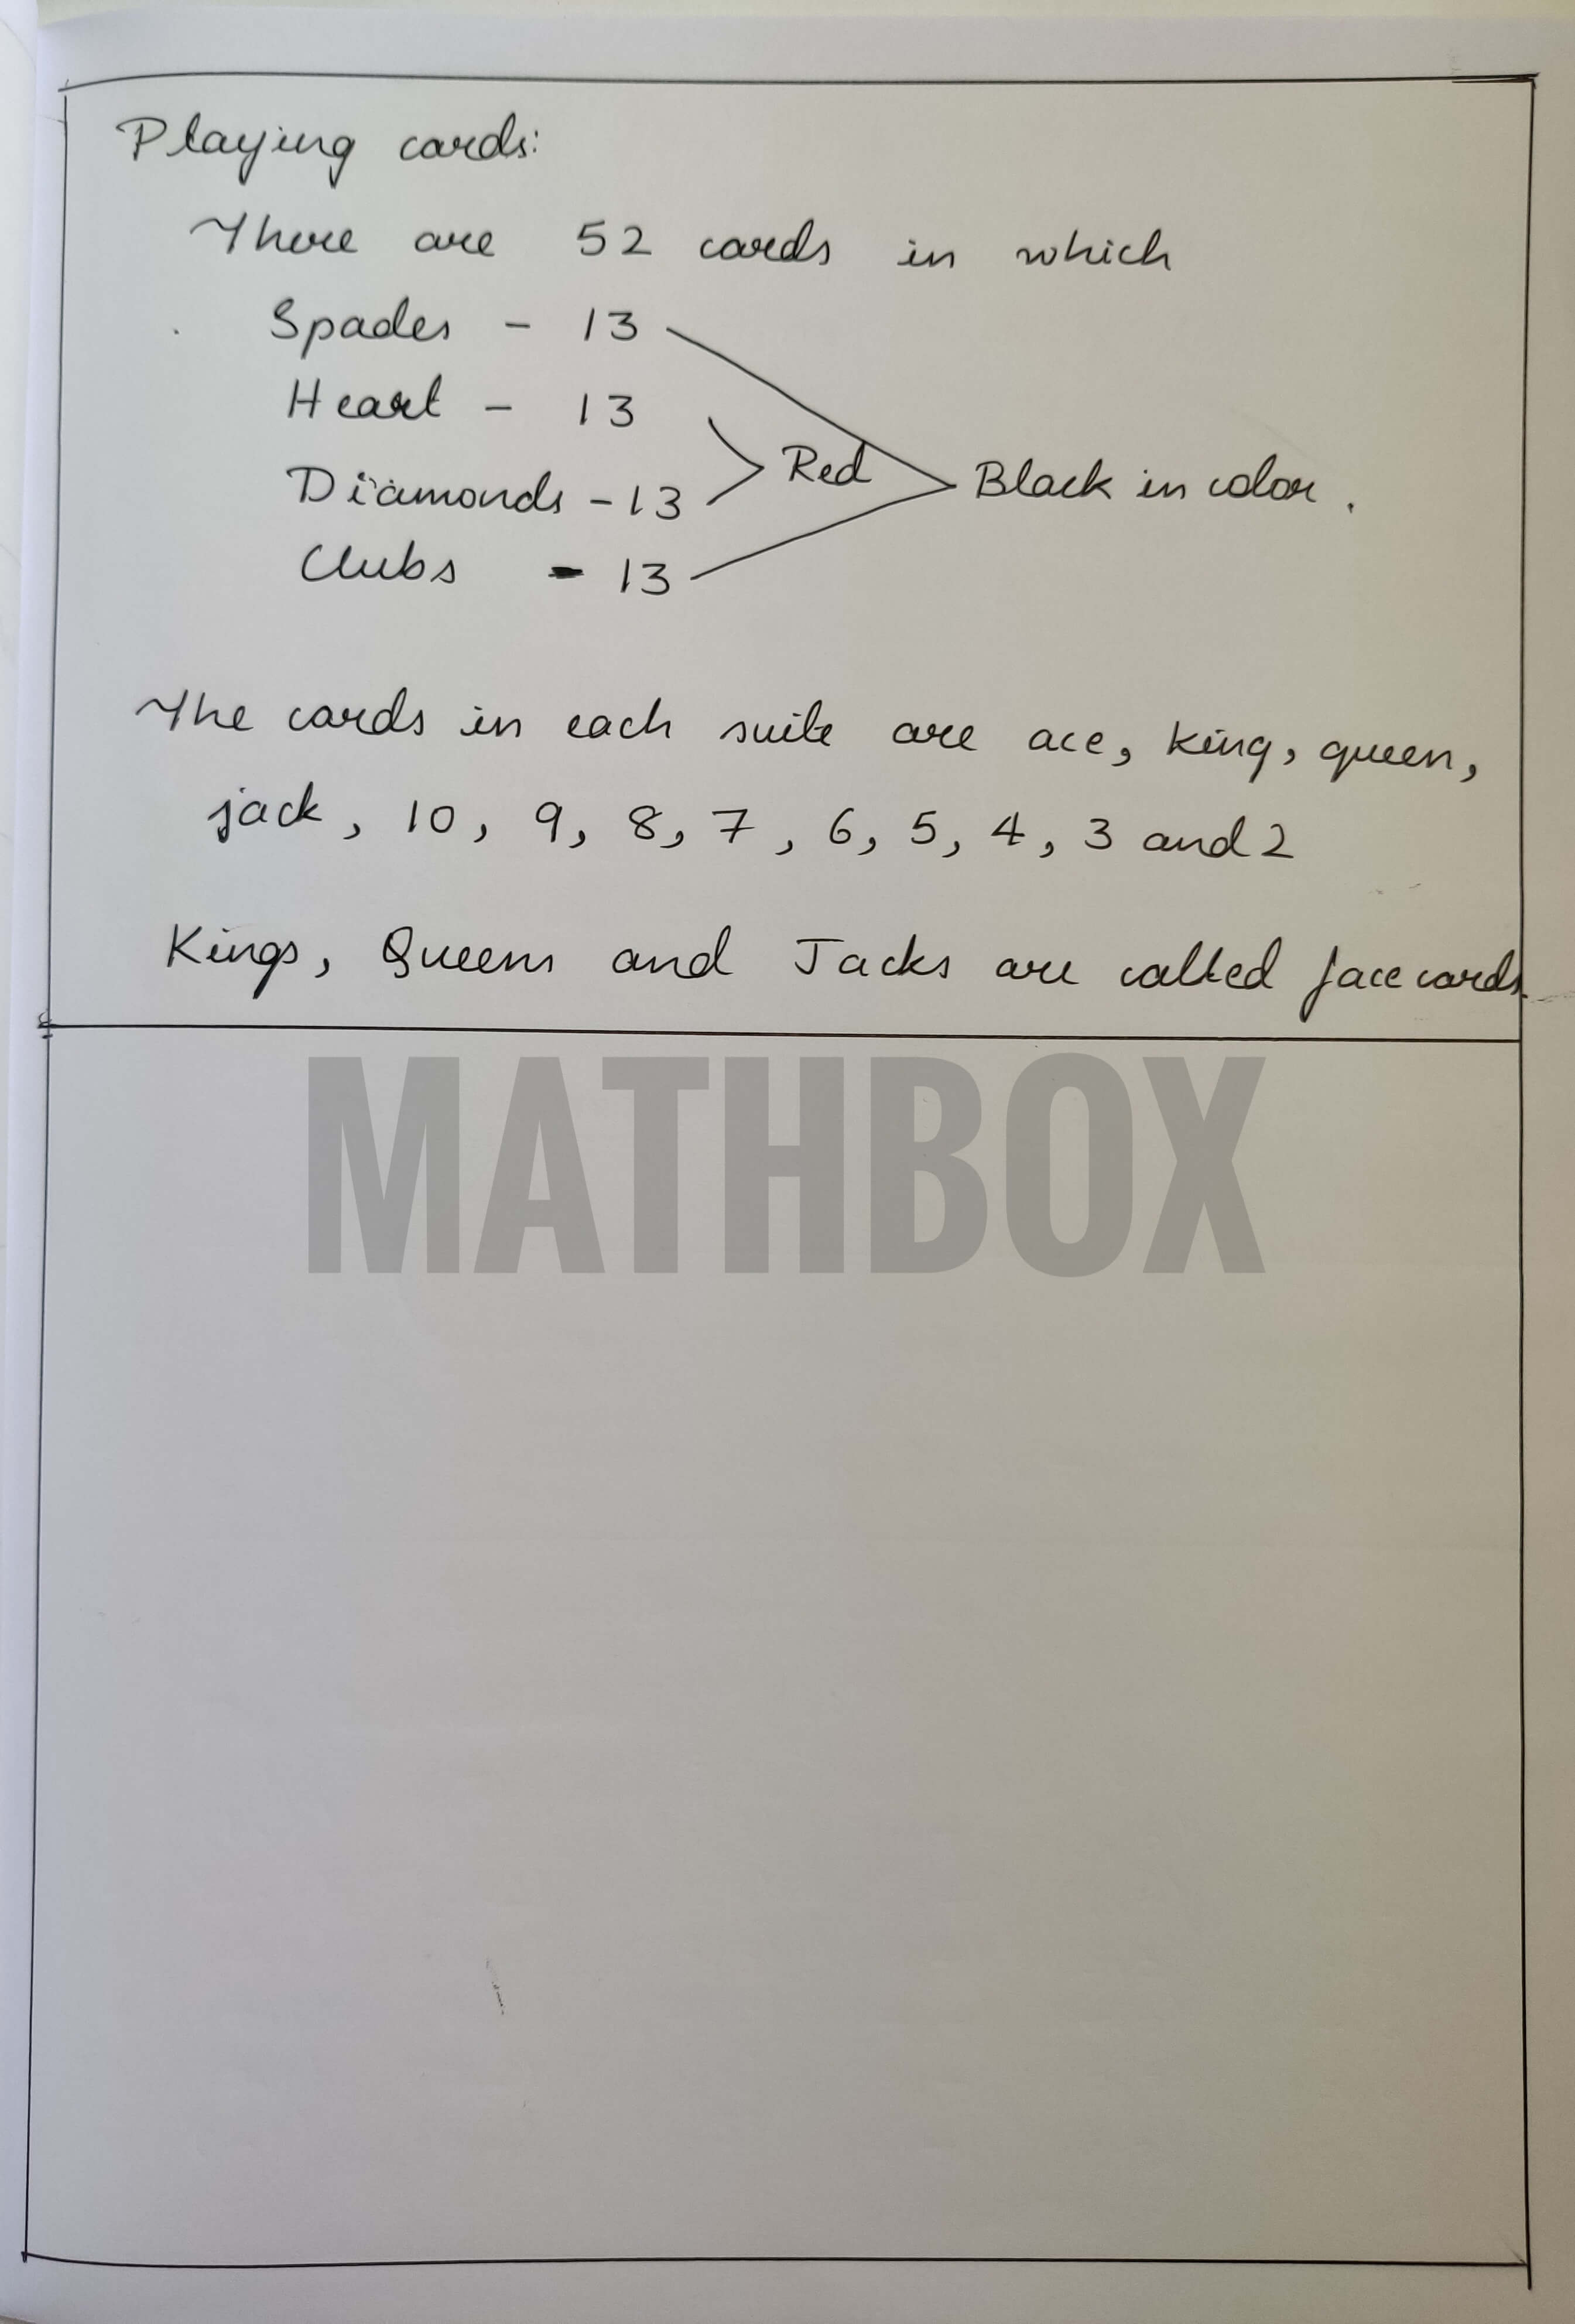 Playing cards:
There are 52 cards in which
Spades - 13
Heart - 13
Red
Diamonds - 13
Black in color.
Clubs - 13
The cards in each suite are ace, king, queen,
jack, 10, 9, 8, 7, 6, 5, 4, 3 and 2
Kings, Queens and Jacks are called face cards.
MATHBOX